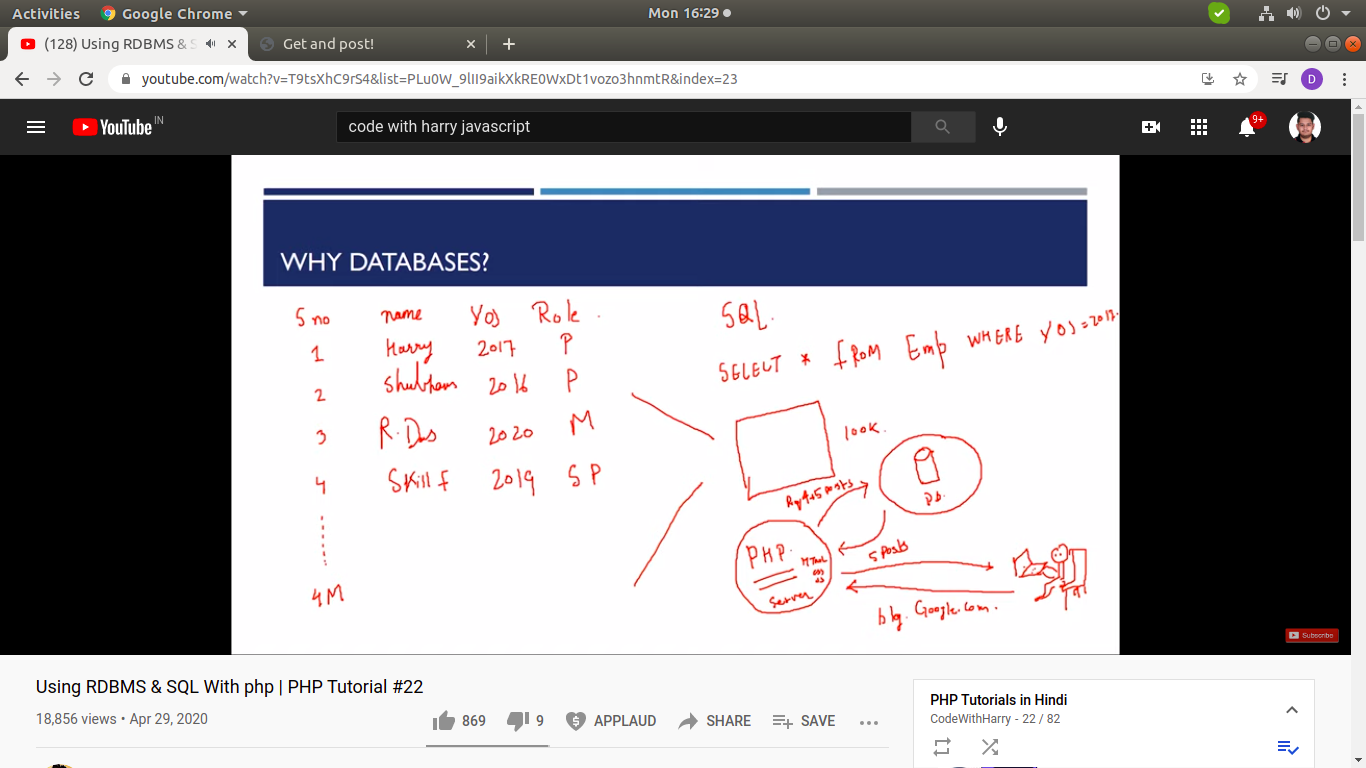 Activities Google Chrome Mon 16:29
(128) Using RDBMS & S Get and post!
youtube.com/watch?v=T9tsXhC9rS4&list=PLu0W_9lII9aikXkRE0WxDt1vozo3hnmtR&index=23 D
YouTube IN code with harry javascript 9+
WHY DATABASES?
S no name YOJ Role
1 Harry 2017 P
2 Shubham 2016 P
3 R.Das 2020 M
4 Skill F 2019 S P
4M
SQL.
SELECT * FROM Emp WHERE YOJ=2017.
100K.
5 posts
DB.
PHP.
Server
5 posts
blg.Google.com.
Subscribe
Using RDBMS & SQL With php | PHP Tutorial #22
18,856 views • Apr 29, 2020 869 9 APPLAUD SHARE SAVE
PHP Tutorials in Hindi
CodeWithHarry - 22 / 82